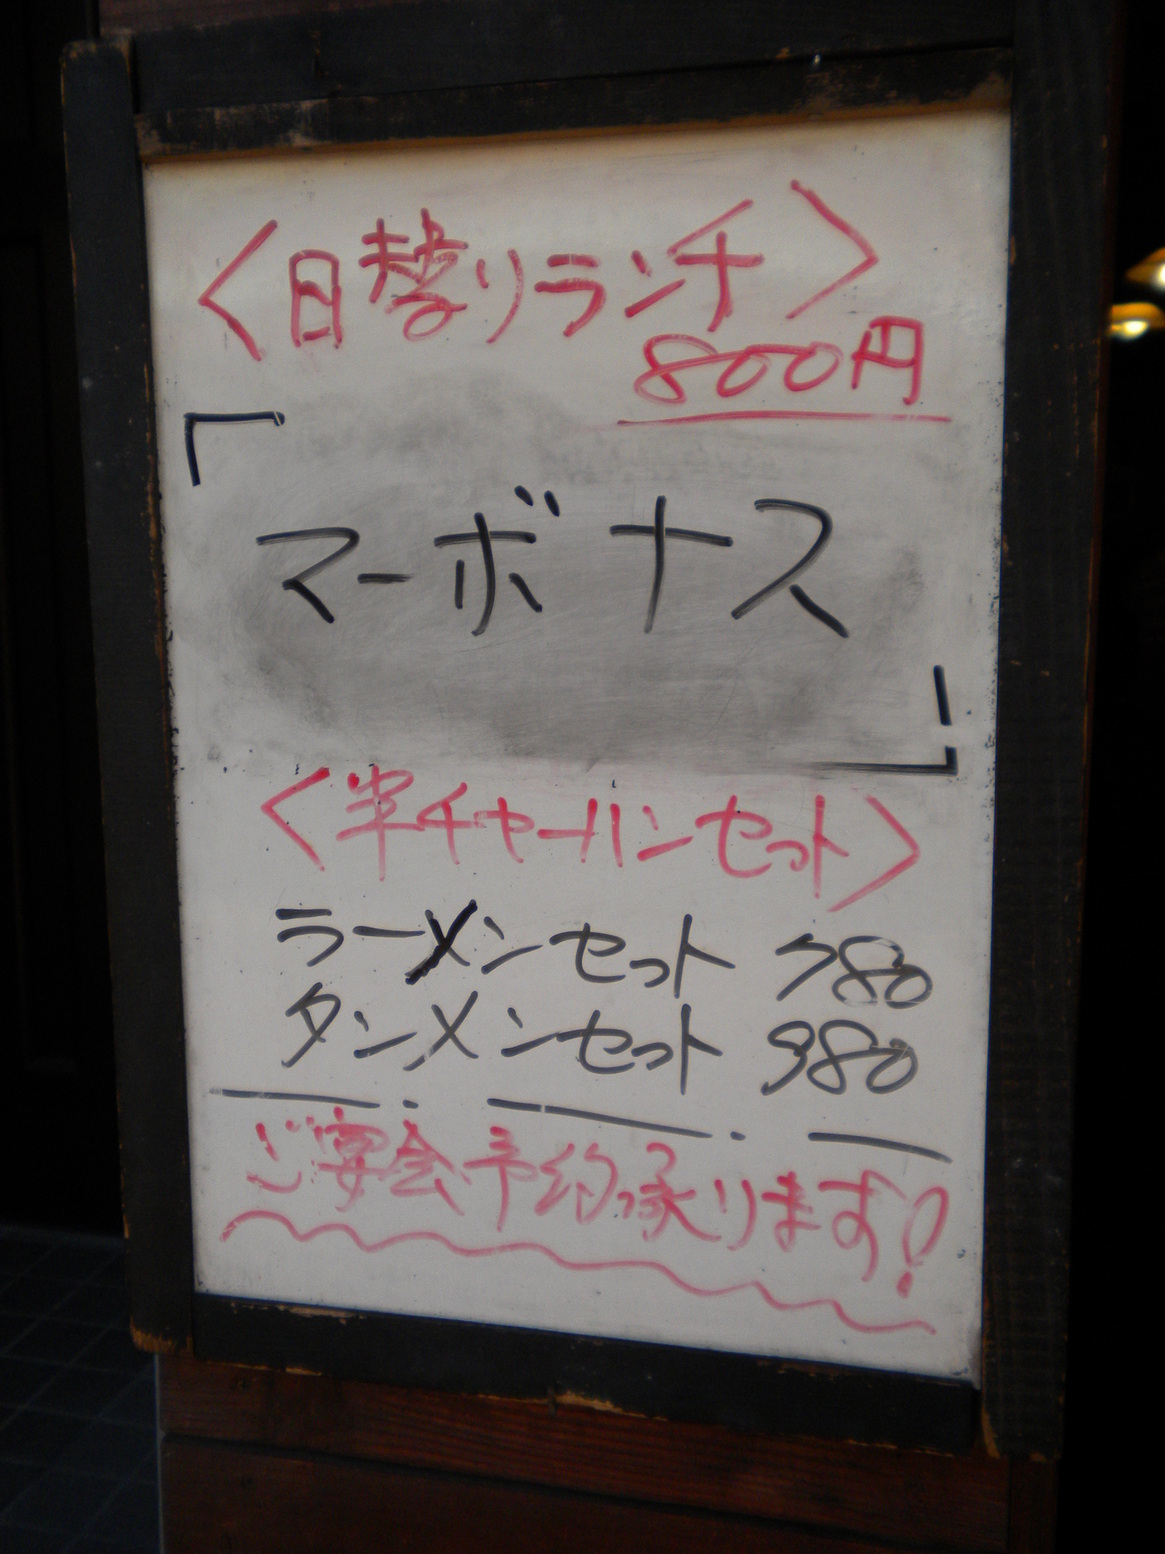 〈日替りランチ〉
800円
「マーボナス」
〈半チャーハンセット〉
ラーメンセット 780
タンメンセット 980
ご宴会予約承ります!